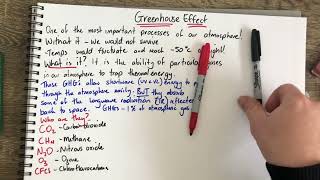 Greenhouse Effect
One of the most important processes of our atmosphere!
Without it - we would not survive
-Temps would fluctuate and reach -50°c at night!
What is it? It is the ability of particular gases
in our atmosphere to trap thermal energy.
These GHGs allow shortwave (uv + vl) energy to
through the atmosphere easily. BUT they absorb
some of the longwave radiation (IR) reflected
back to space. GHGs - 1% of atmospheric gas
Who are they?
CO2 - Carbon dioxide
CH4 - Methane
N2O - Nitrous oxide
O3 - Ozone
CFCs - Chlorofluorocarbons